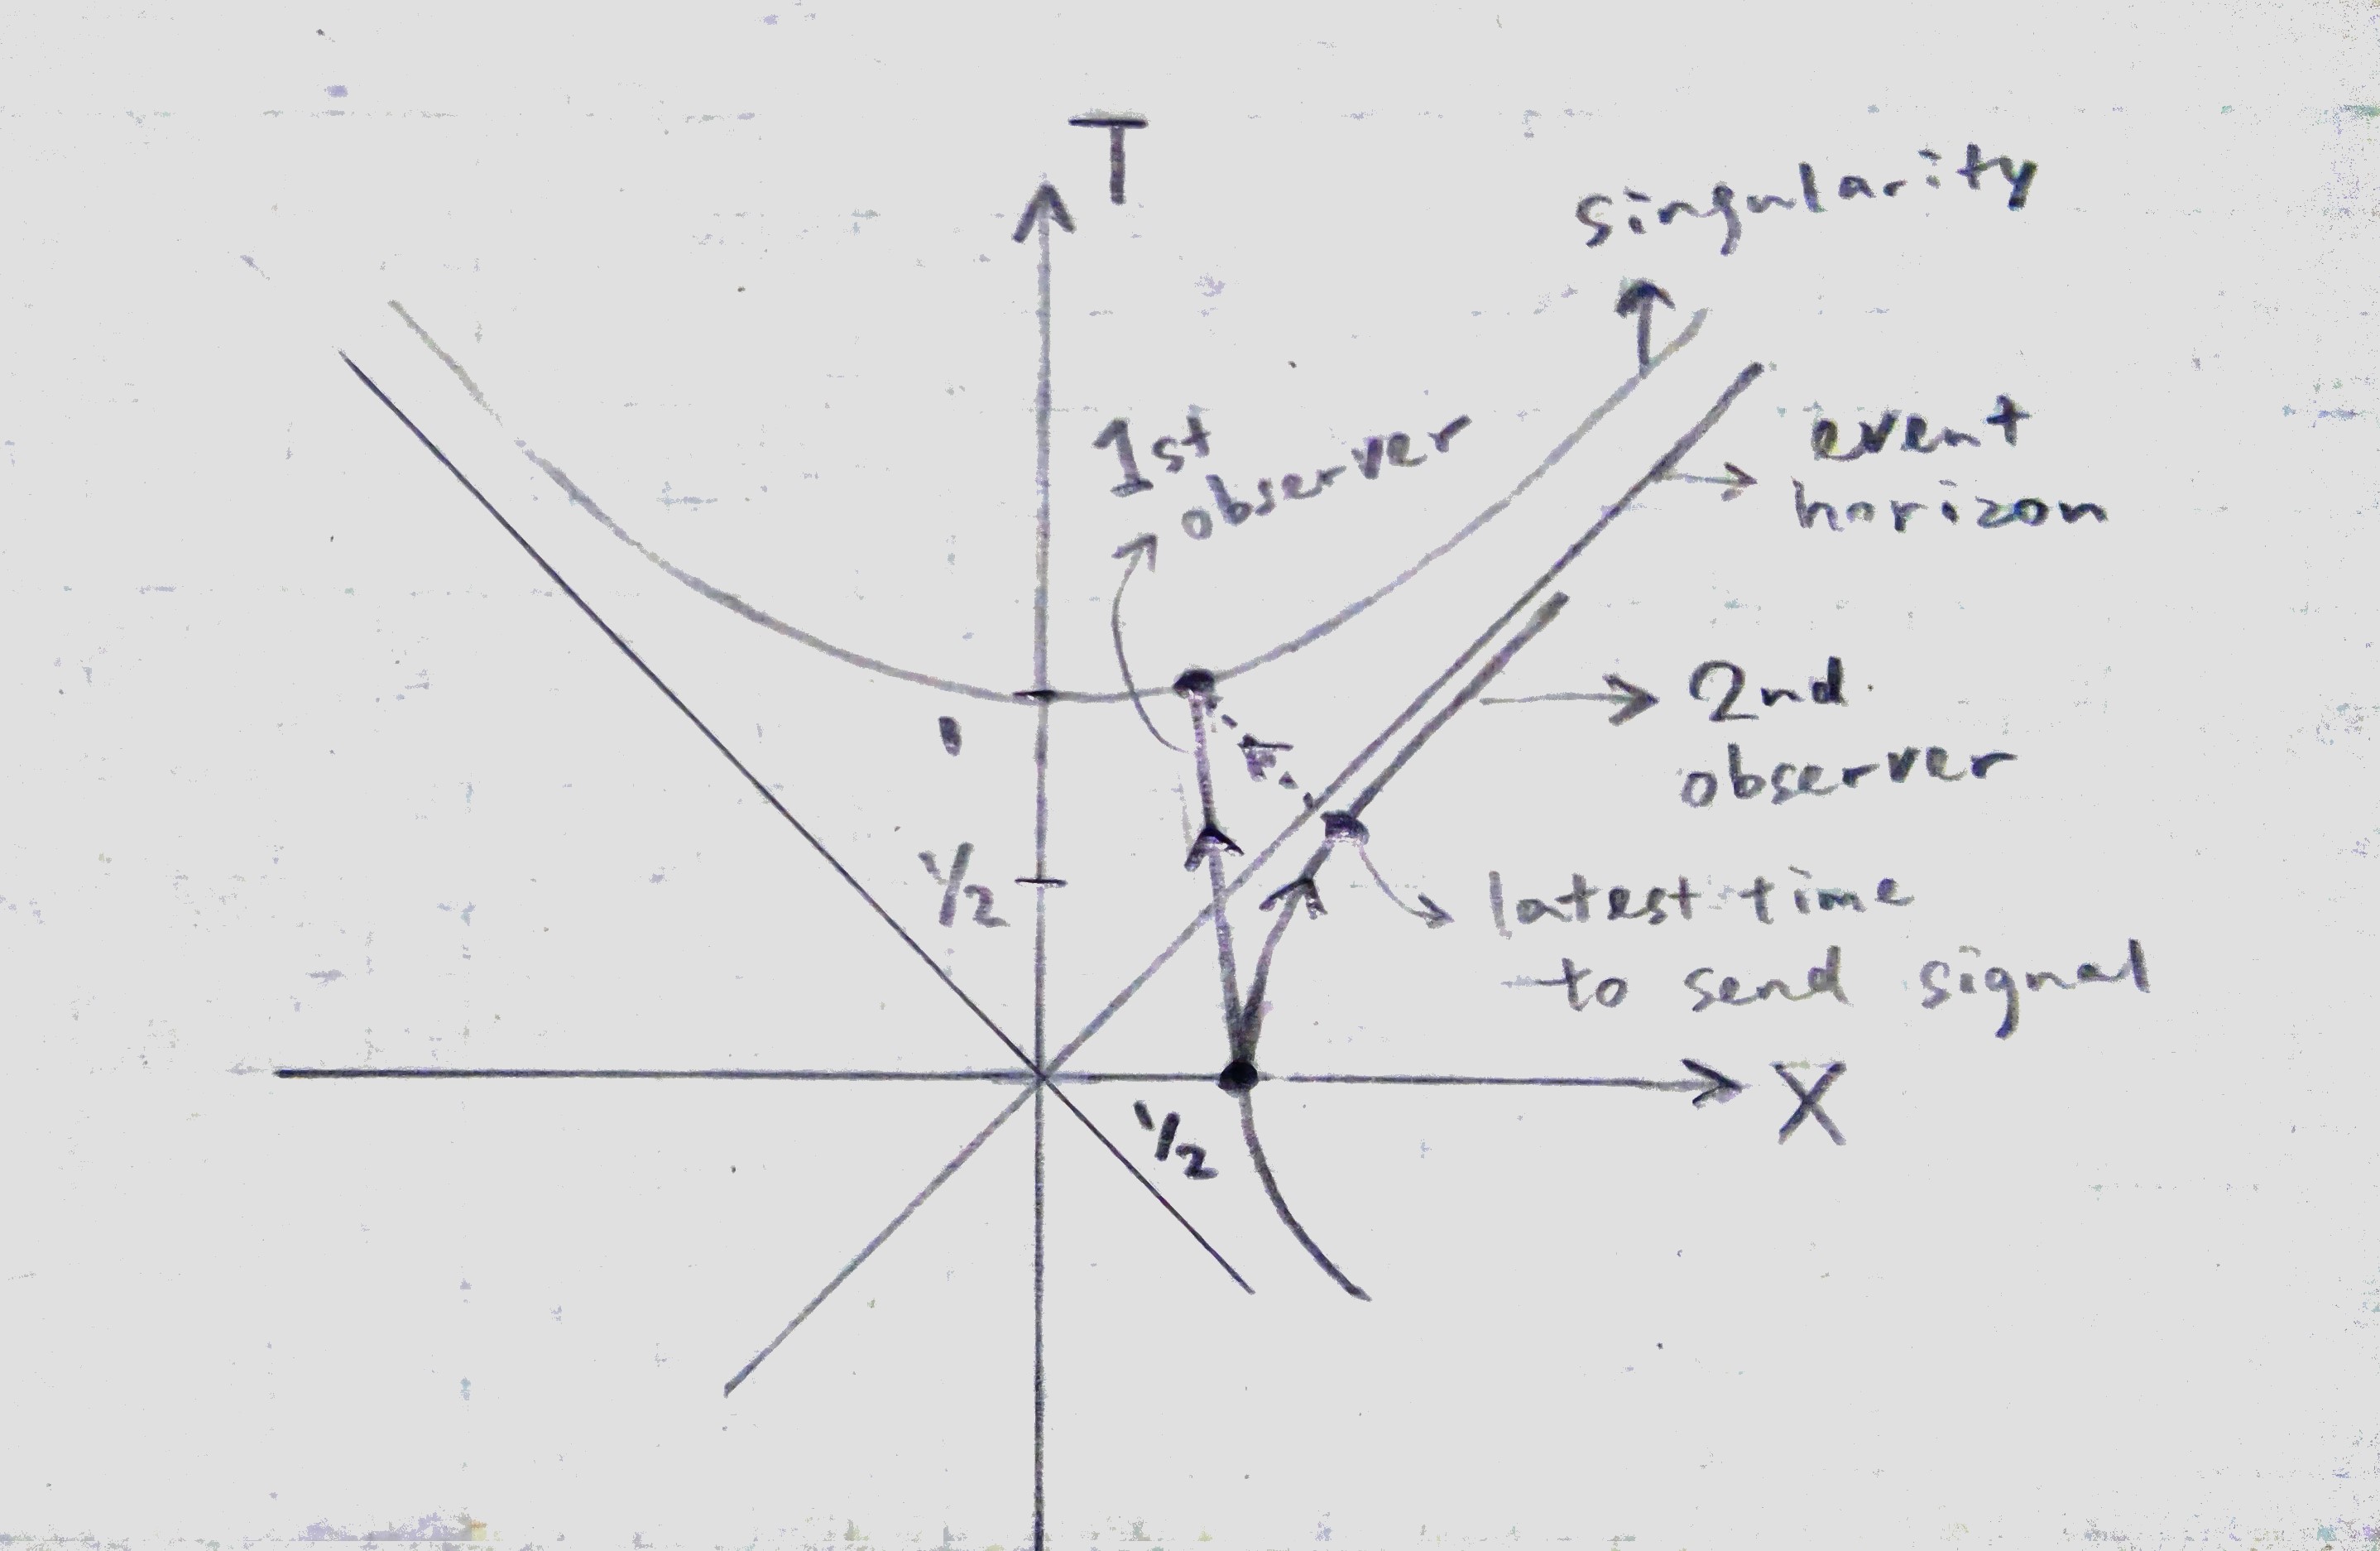 T
singularity
1st
observer
event
horizon
1
2nd
observer
1/2
latest time
to send signal
X
1/2